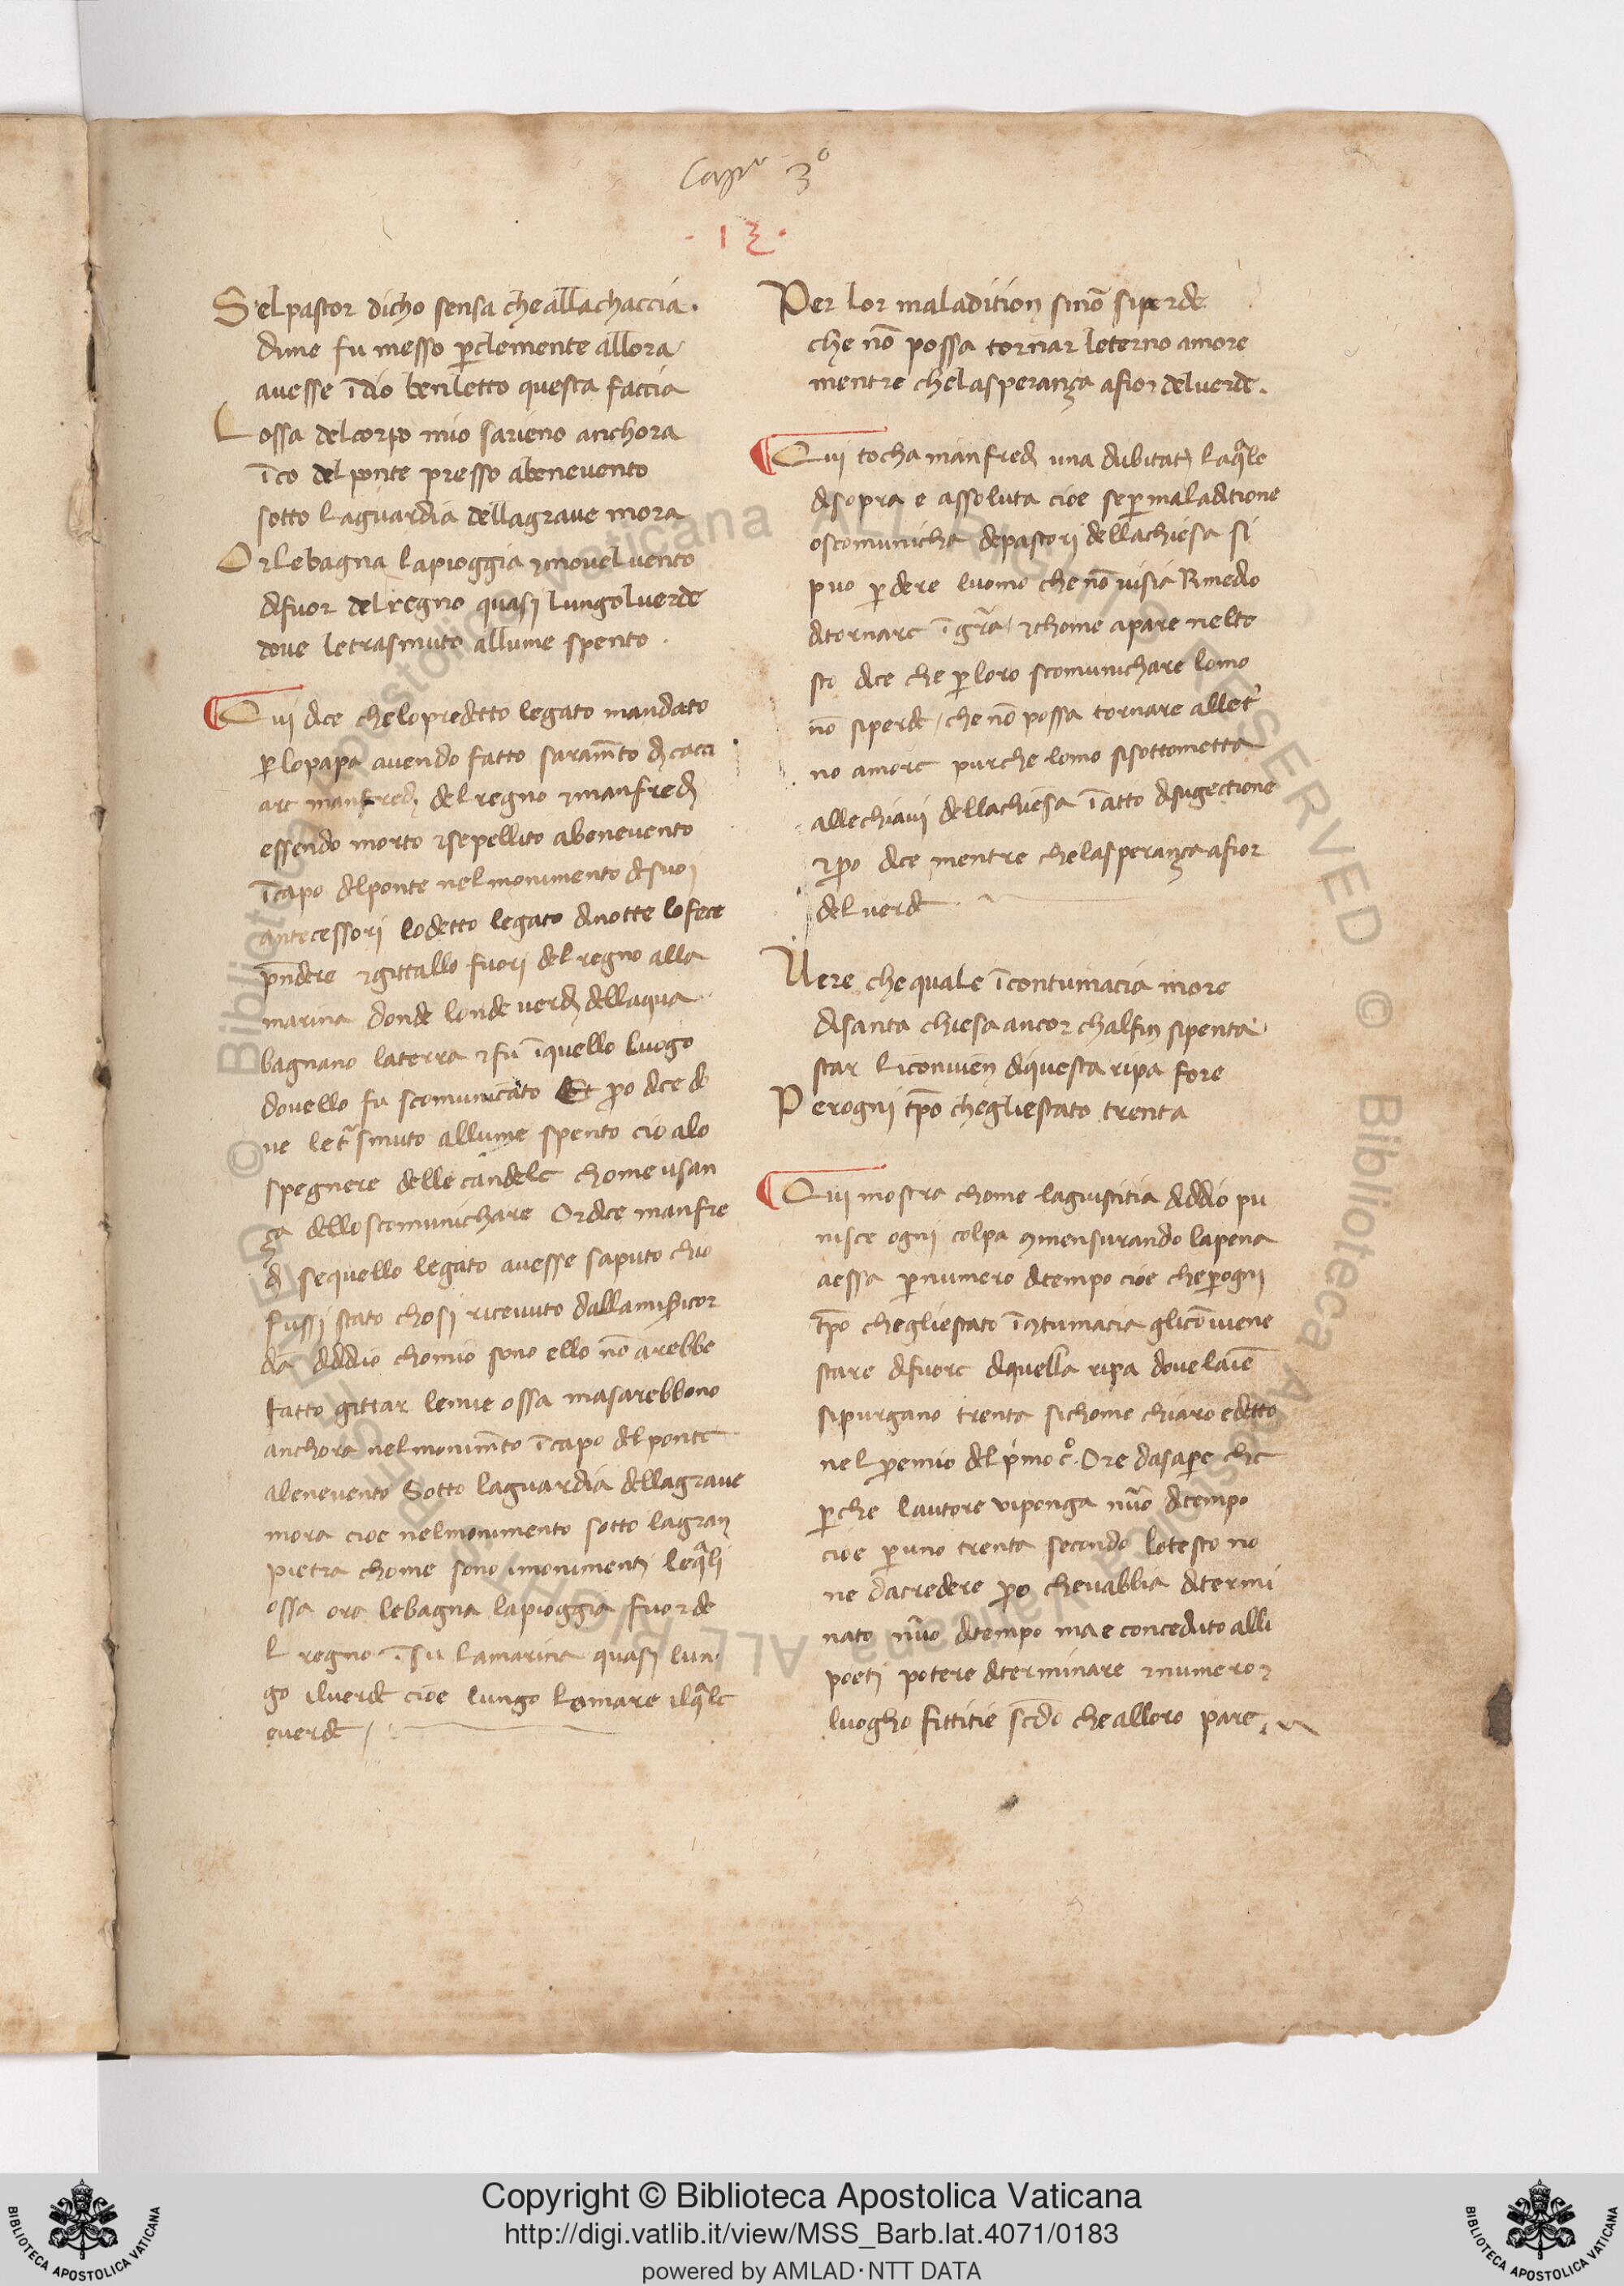 Capº 3º
· 13 ·
Selpastor dicho sensa che alla chaccia.
dime fu messo p clemente allora
avesse īdio ben letto questa faccia
Lossa del corpo mio sarieno anchora
ī co del ponte presso abenevento
sotto laguardia dellagrave mora
Or lebagna lapioggia ⁊ movel vento
difuor del regno quasi lungol verde
dove letrasmuto allume spento.
Qui dice chelo predetto legato mandato
p lopapa avendo fatto saramēto di cacci
are manfredi del regno ⁊ manfredi
essendo morto ⁊ sepellito abenevento
ī capo delponte nel monimento desuoi
antecessori lodetto legato dinotte lo fece
pndere ⁊ gittallo fuori del regno alla
marina donde londe verdi dellaqua
bagnano laterra ⁊ fu ī quello luogo
dovello fu scomunicato Et po dice do
ve let̄smuto allume spento cio alo
spegnere delle candele chome usan
ça dello scomunichare Or dice manfre
di sequello legato avesse saputo chio
fussi stato chosi ricevuto dallamisicor
dia diddio chomio sono ello nō arebbe
fatto gittar lemie ossa masarebbono
anchora nel monimēto ī capo del ponte
abenevento Sotto laguardia dellagrave
mora cioe nelmonimento sotto lagran
pietra chome sono imonimenti leq̄li
ossa ora lebagna lapioggia fuor de
l regno ī su lamarina quasi lun
go ilverde cioe lungo lomare ilq̄le
e verde
Per lor maladition sinō siperde
che nō possa tornar leterno amore
mentre chelasperança a fior delverde.
Qui tocha manfredi una dubitatē laq̄le
disopra e assoluta cioe se p maladitione
oscomunicha depastori dellachiesa si
puo pdere luomo che nō visia Rimedio
ditornare ī grā, ⁊ chome apare nelte
sto dice che p loro scomunichare lomo
nō siperde / che nō possa tornare alleter
no amore purche lomo sisottometta
allechiavi dellachiesa ī atto disugectione
⁊ po dice mentre chelasperança a fior
del verde
Vere che quale ī contumacia more
disanta chiesa ancor chalfin sipenta
star liconvien diquesta ripa fore
Per ogni tpō chegliestato trenta
Qui mostra chome lagiustitia diddio pu
nisce ogni colpa ꝯmensurando lapena
aessa p numero ditempo cioe che p ogni
tpō chegliestato ī ꝯtumacia glicōviene
stare difuore diquella ripa dove lavē
sipurgano trenta sichome chiaro edetto
nel pemio del pimo cº. Ore dasape che
pche lautore viponga nūo ditempo
cioe p uno trenta secondo lotesto no
ne dacredere po chevabbia ditermi
nato nūo ditempo ma e conceduto alli
poeti potere diterminare ⁊ numero ⁊
luogho fittitie scdō che alloro pare.
Copyright © Biblioteca Apostolica Vaticana
http://digi.vatlib.it/view/MSS_Barb.lat.4071/0183
powered by AMLAD·NTT DATA